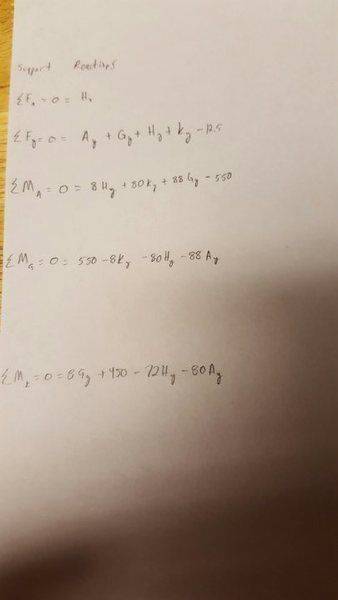 Support Reactions
ΣFx = 0 = Hx
ΣFy = 0 = Ay + Gy + Hy + Ky - 12.5
ΣMA = 0 = 8Hy + 80Ky + 88Gy - 550
ΣMG = 0 = 550 - 8Ky - 80Hy - 88Ay
ΣMK = 0 = 8Gy + 450 - 72Hy - 80Ay